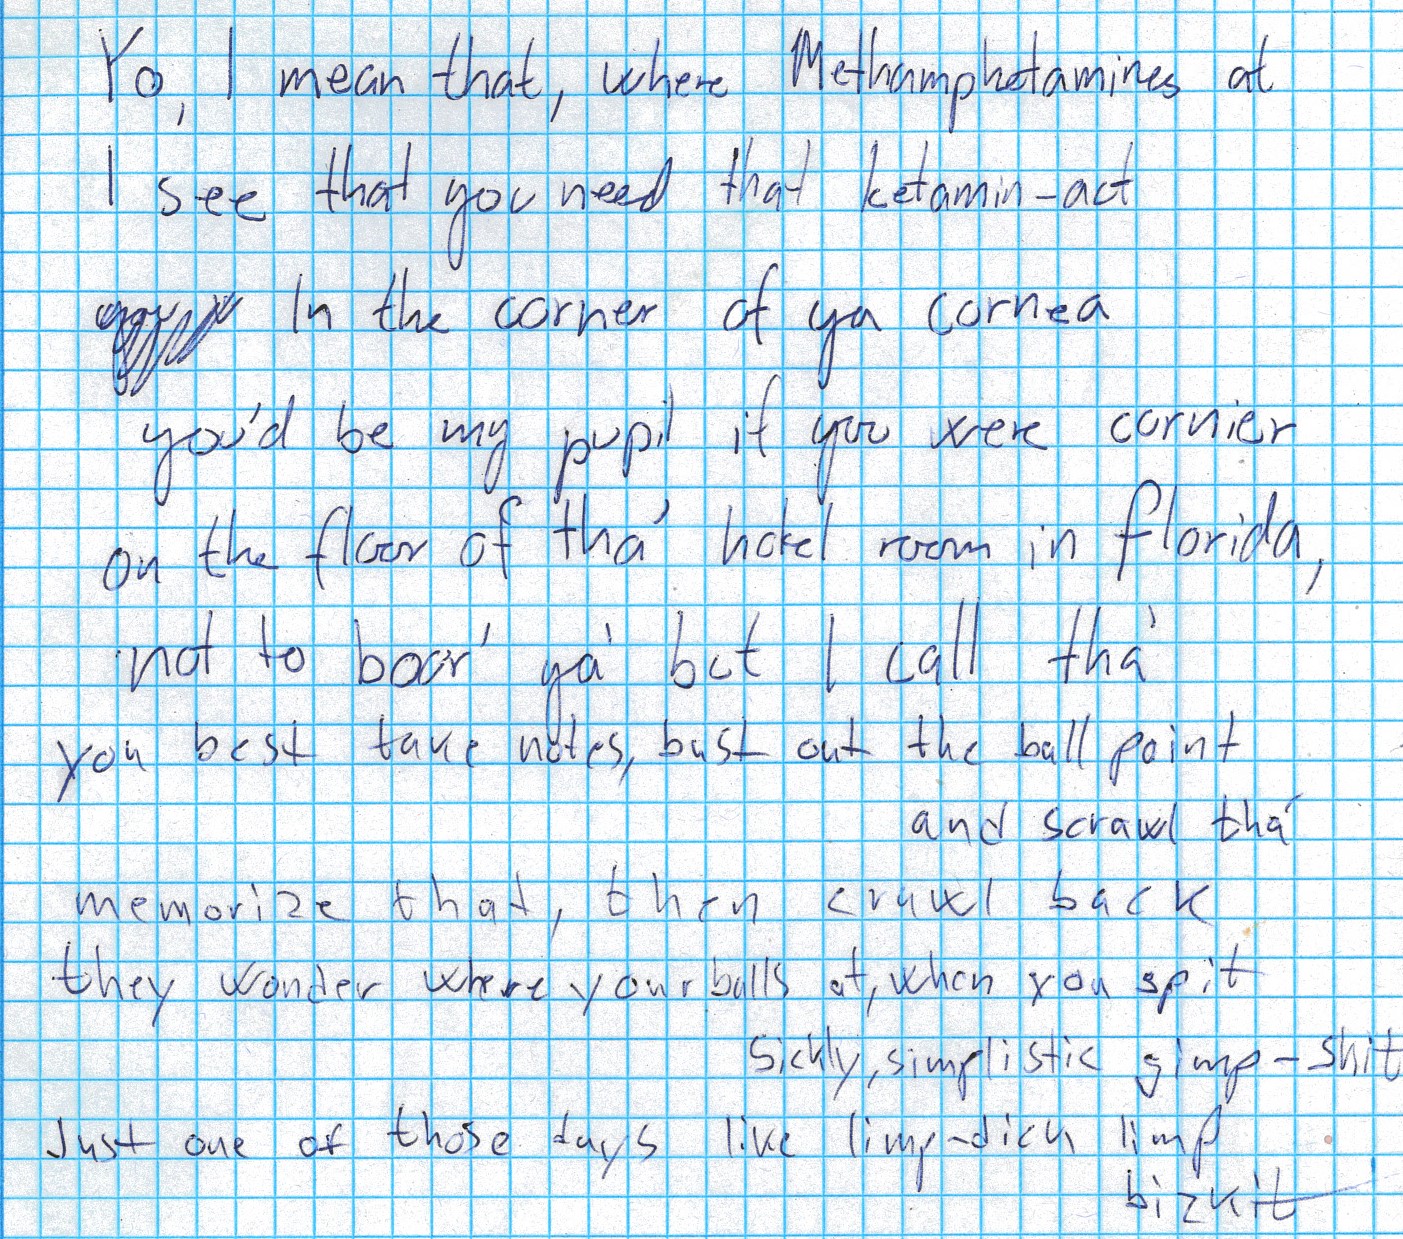 Yo, I mean that, where Methamphetamines at
I see that you need that ketamin-act
In the corner of ya cornea
you'd be my pupil if you were cornier
on the floor of tha' hotel room in florida,
not to boor' ya' but I call tha'
you best take notes, bust out the ball point
and scrawl tha'
memorize that, then crawl back
they wonder where your balls at, when you spit
Sickly, simplistic gimp-shit
Just one of those days like limp-dick limp
bizkit